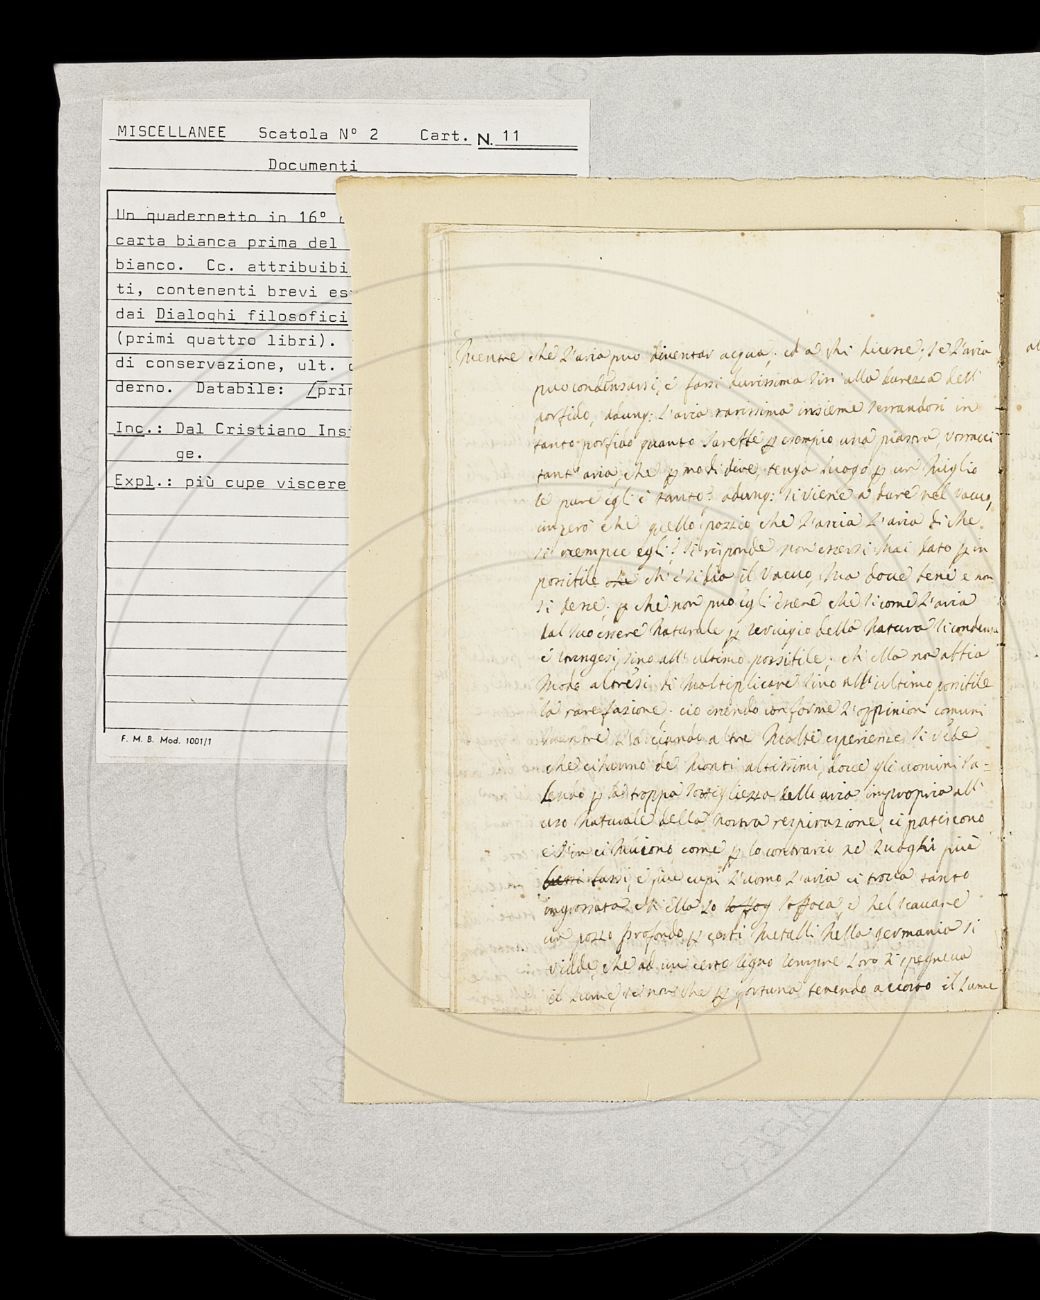 MISCELLANEE Scatola N° 2 Cart. N. 11
Documenti
Un quadernetto in 16°
carta bianca prima del
bianco. Cc. attribuibi
ti, contenenti brevi es
dai Dialoghi filosofici
(primi quattro libri).
di conservazione, ult.
derno. Databile: /prin
Inc.: Dal Cristiano Ins
ge.
Expl.: più cupe viscere
F. M. B. Mod. 1001/1
Mentre che l'aria può diventar acqua, ed a chi dicesse, se l'aria
può condensarsi, e farsi durissima sin' alla durezza dell'
porfido, adunq: l'aria rarissima insieme serrandosi in
tanto porfido quanto sarebbe p esempio una piastra, vorracci
tant' aria, che p modo di dire, tenga luogo p un' miglio
se pure egli è tanto? adunq: si viene a dare nel vacuo,
imperò che quello spazio che lascia l'aria di che
si riempie egli? Si risponde non essersi mai dato p in
possibile ch' e' si dia il Vacuo, ma dove bene e non
si desse, p che non può egli essere che sicome l'aria
dal suo essere naturale p servigio della Natura si condensa
e stringesi sino all' ultimo possibile, ch' ella no abbia
Modo altresì di moltiplicare sino all' ultimo possibile
la rarefazione, ciò essendo conforme l'oppinion comuni
Mentre lasciando altre Molte esperienze si vede
che ci hanno de' Monti altissimi, dove gli uomini sa-
lendo p la troppa sottigliezza dell aria impropria all'
uso Naturale della Nostra respirazione, ci patiscono
e s'in ci Muiono, come p lo contrario ne Luoghi più
bassi, e più cupi L'uomo L'aria ci trova tanto
ingrossata ch' ella lo soffoca, e Nel scavare
un pozzo profondo p certi Metalli Nella germania si
vidde, che ad un certo segno sempre Loro si spegneva
il Lume, se non che p fortuna tenendo accorto il Lume